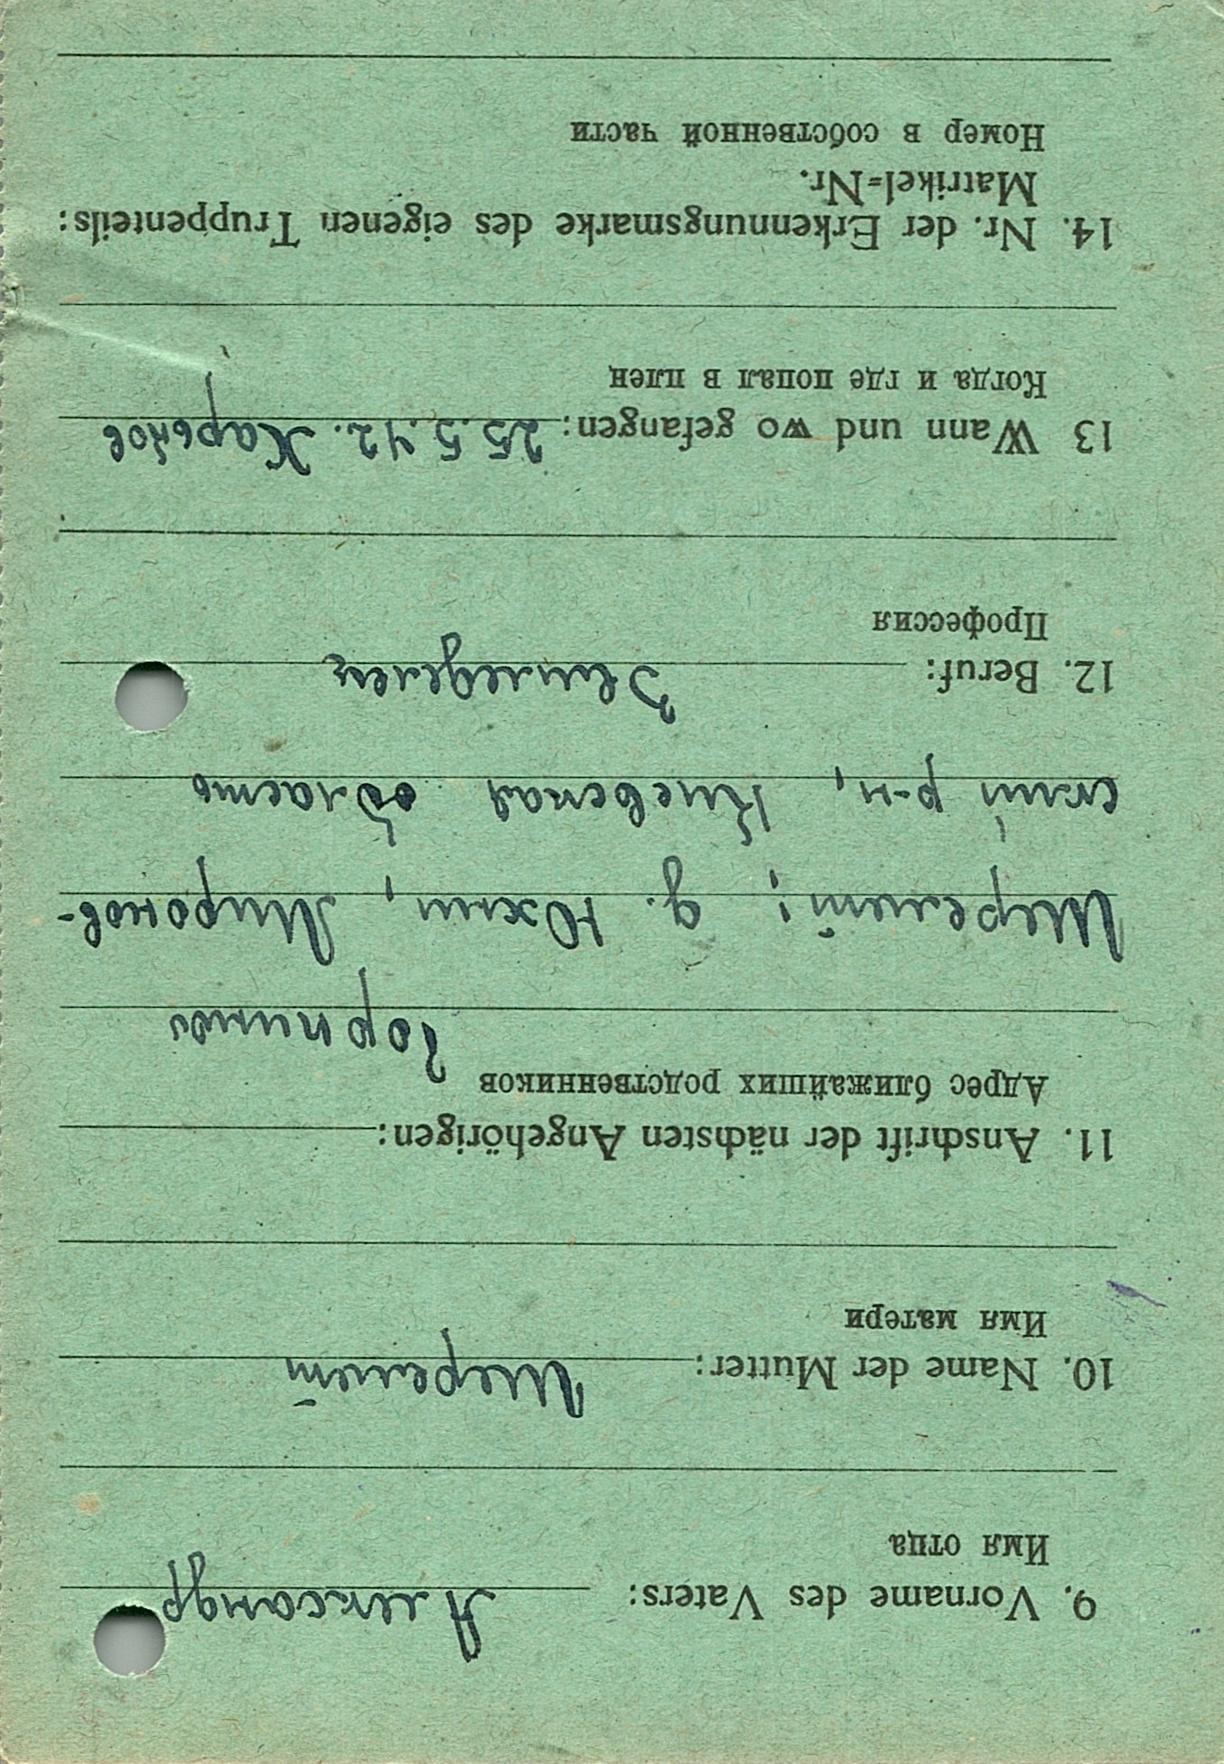 9. Vorname des Vaters: Александр
Имя отца
10. Name der Mutter: Шеремет
Имя матери
11. Anschrift der nächsten Angehörigen:
Адрес ближайших родственников
Шеремет; д. Юхны, Миронов-
ский р-н, Киевская область
12. Beruf: Земледелец
Профессия
13 Wann und wo gefangen: 25.5.42. Харьков
Когда и где попал в плен
14. Nr. der Erkennungsmarke des eigenen Truppenteils:
Matrikel=Nr.
Номер в собственной части